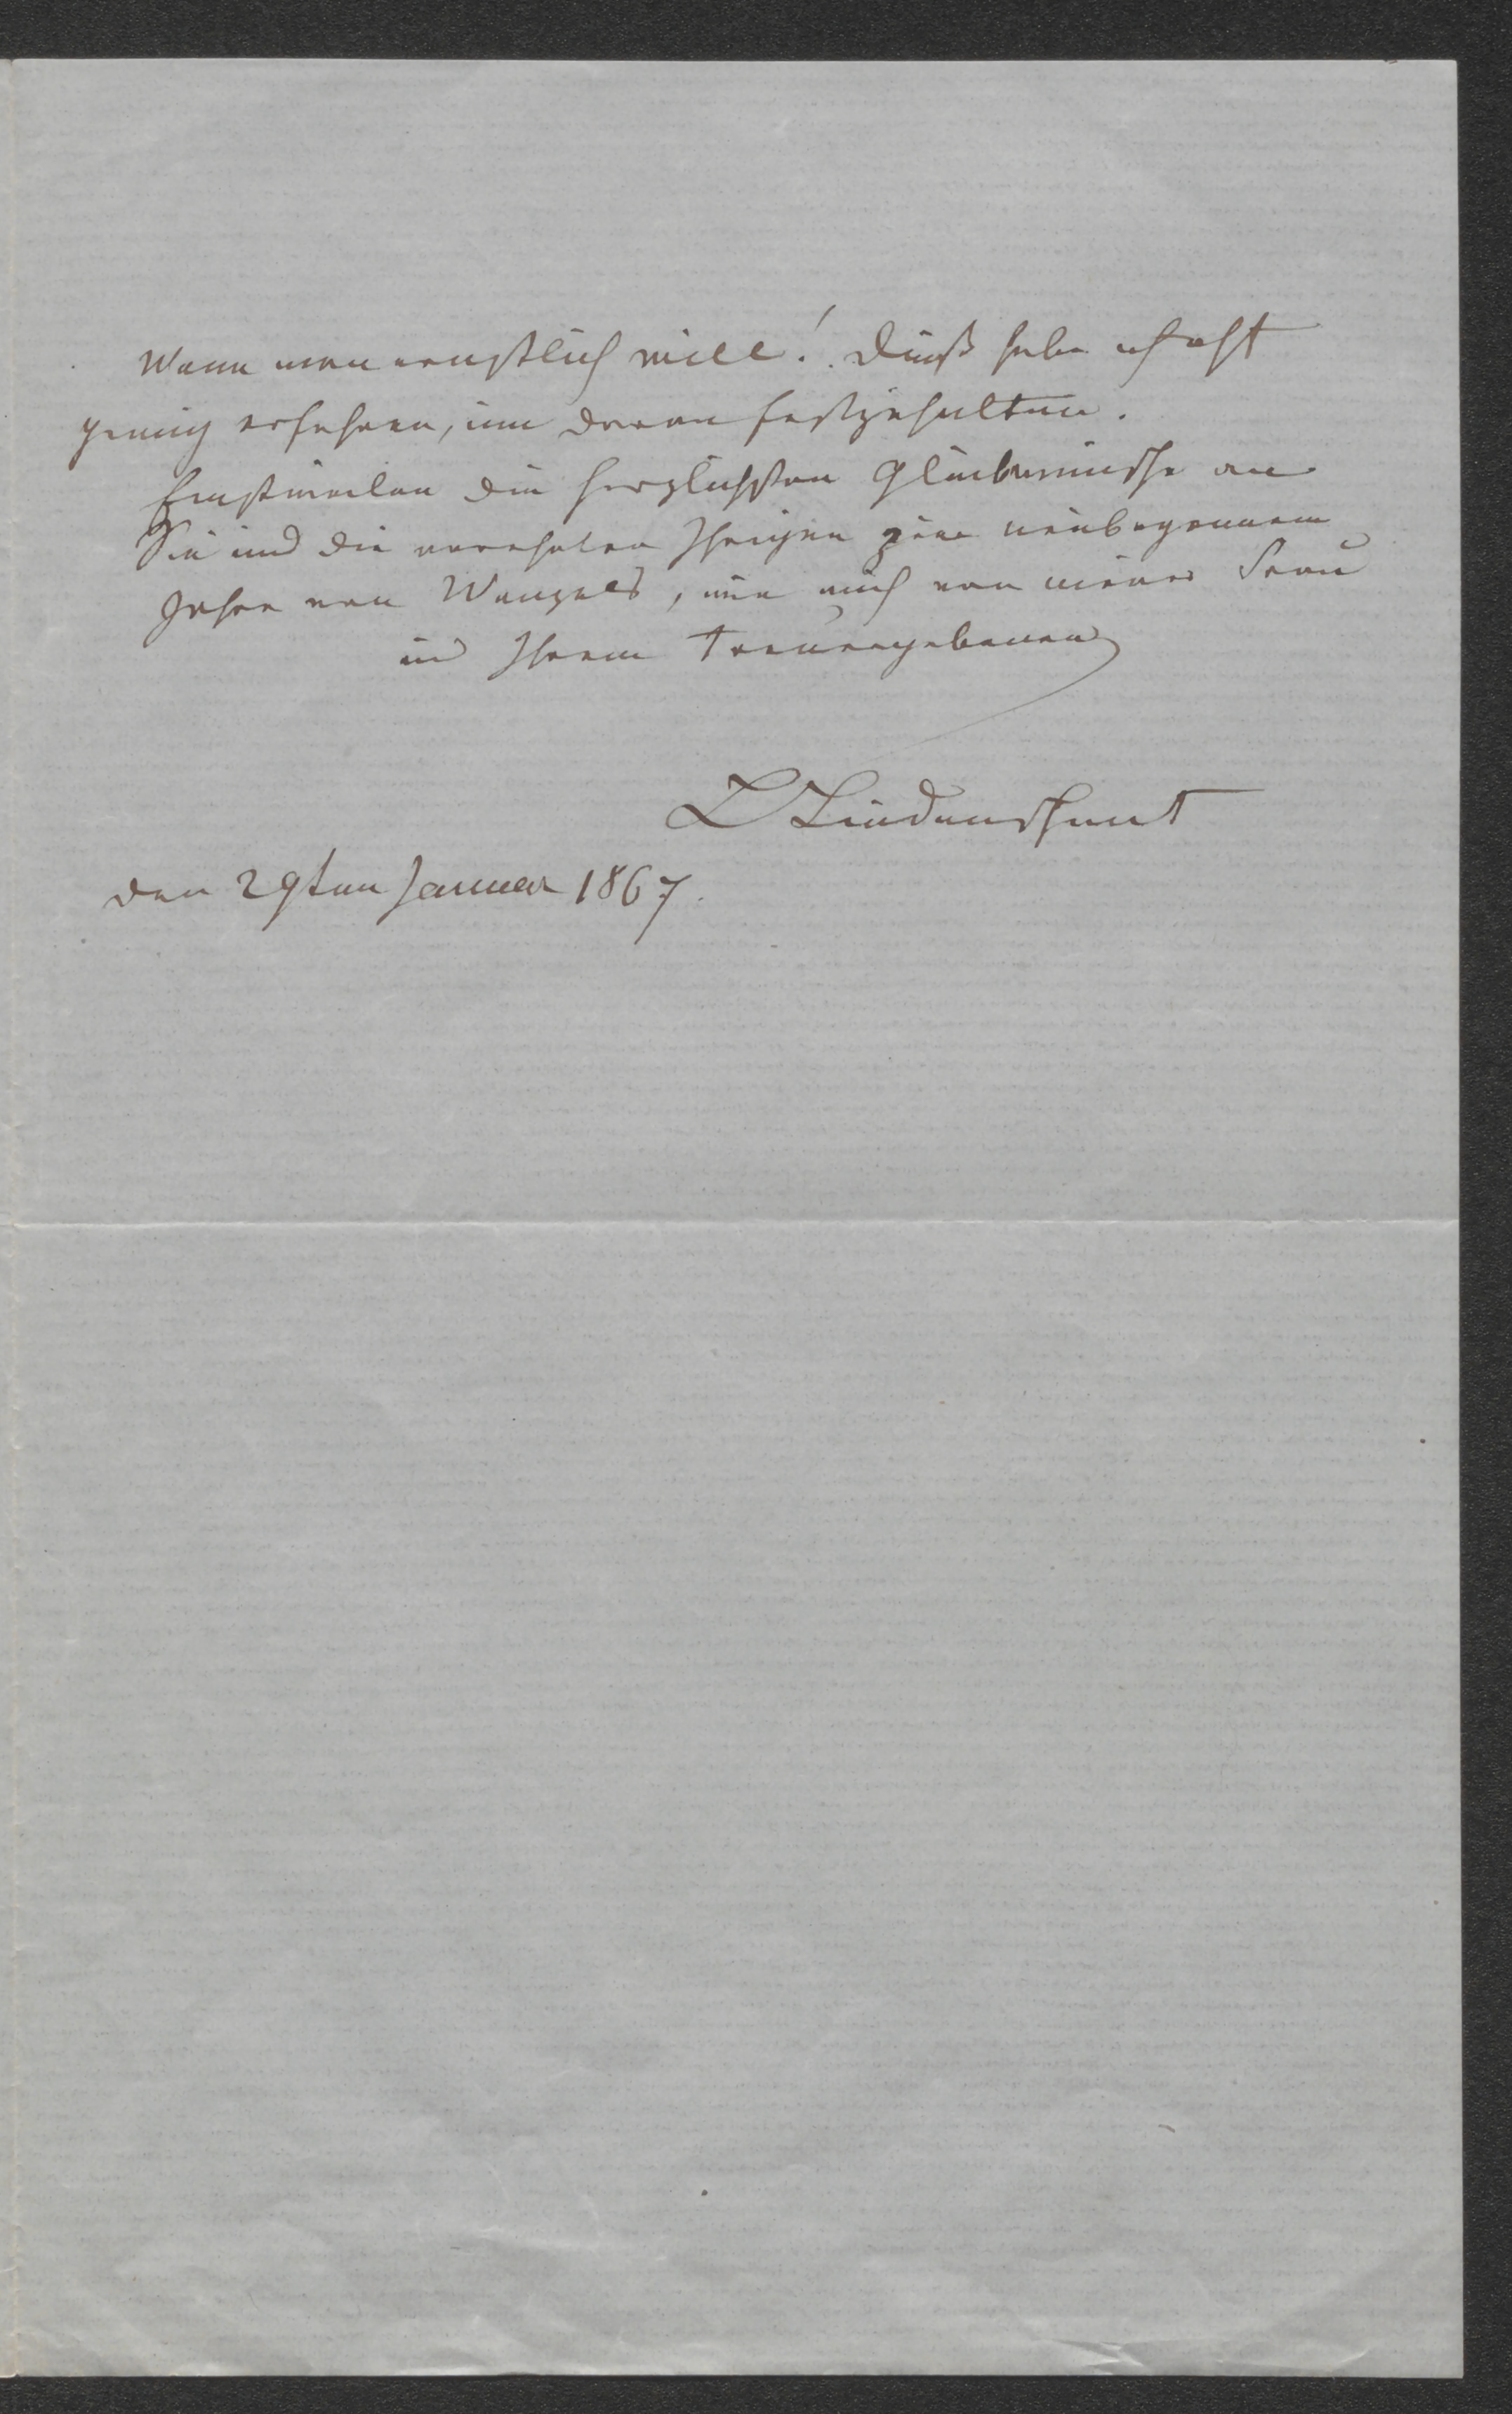 Wenn man ernstlich will! Dieß habe ich oft
genug erfahren, um daran festzuhalten.
Einstweilen die herzlichsten Glückwünsche an
Sie und die verehrten Ihrigen zum neubegonnenen
Jahre von Wenzels, wie auch von meiner Frau
und Ihrem Treuergebenen
L Lindenschmit
den 29ten Januar 1867.